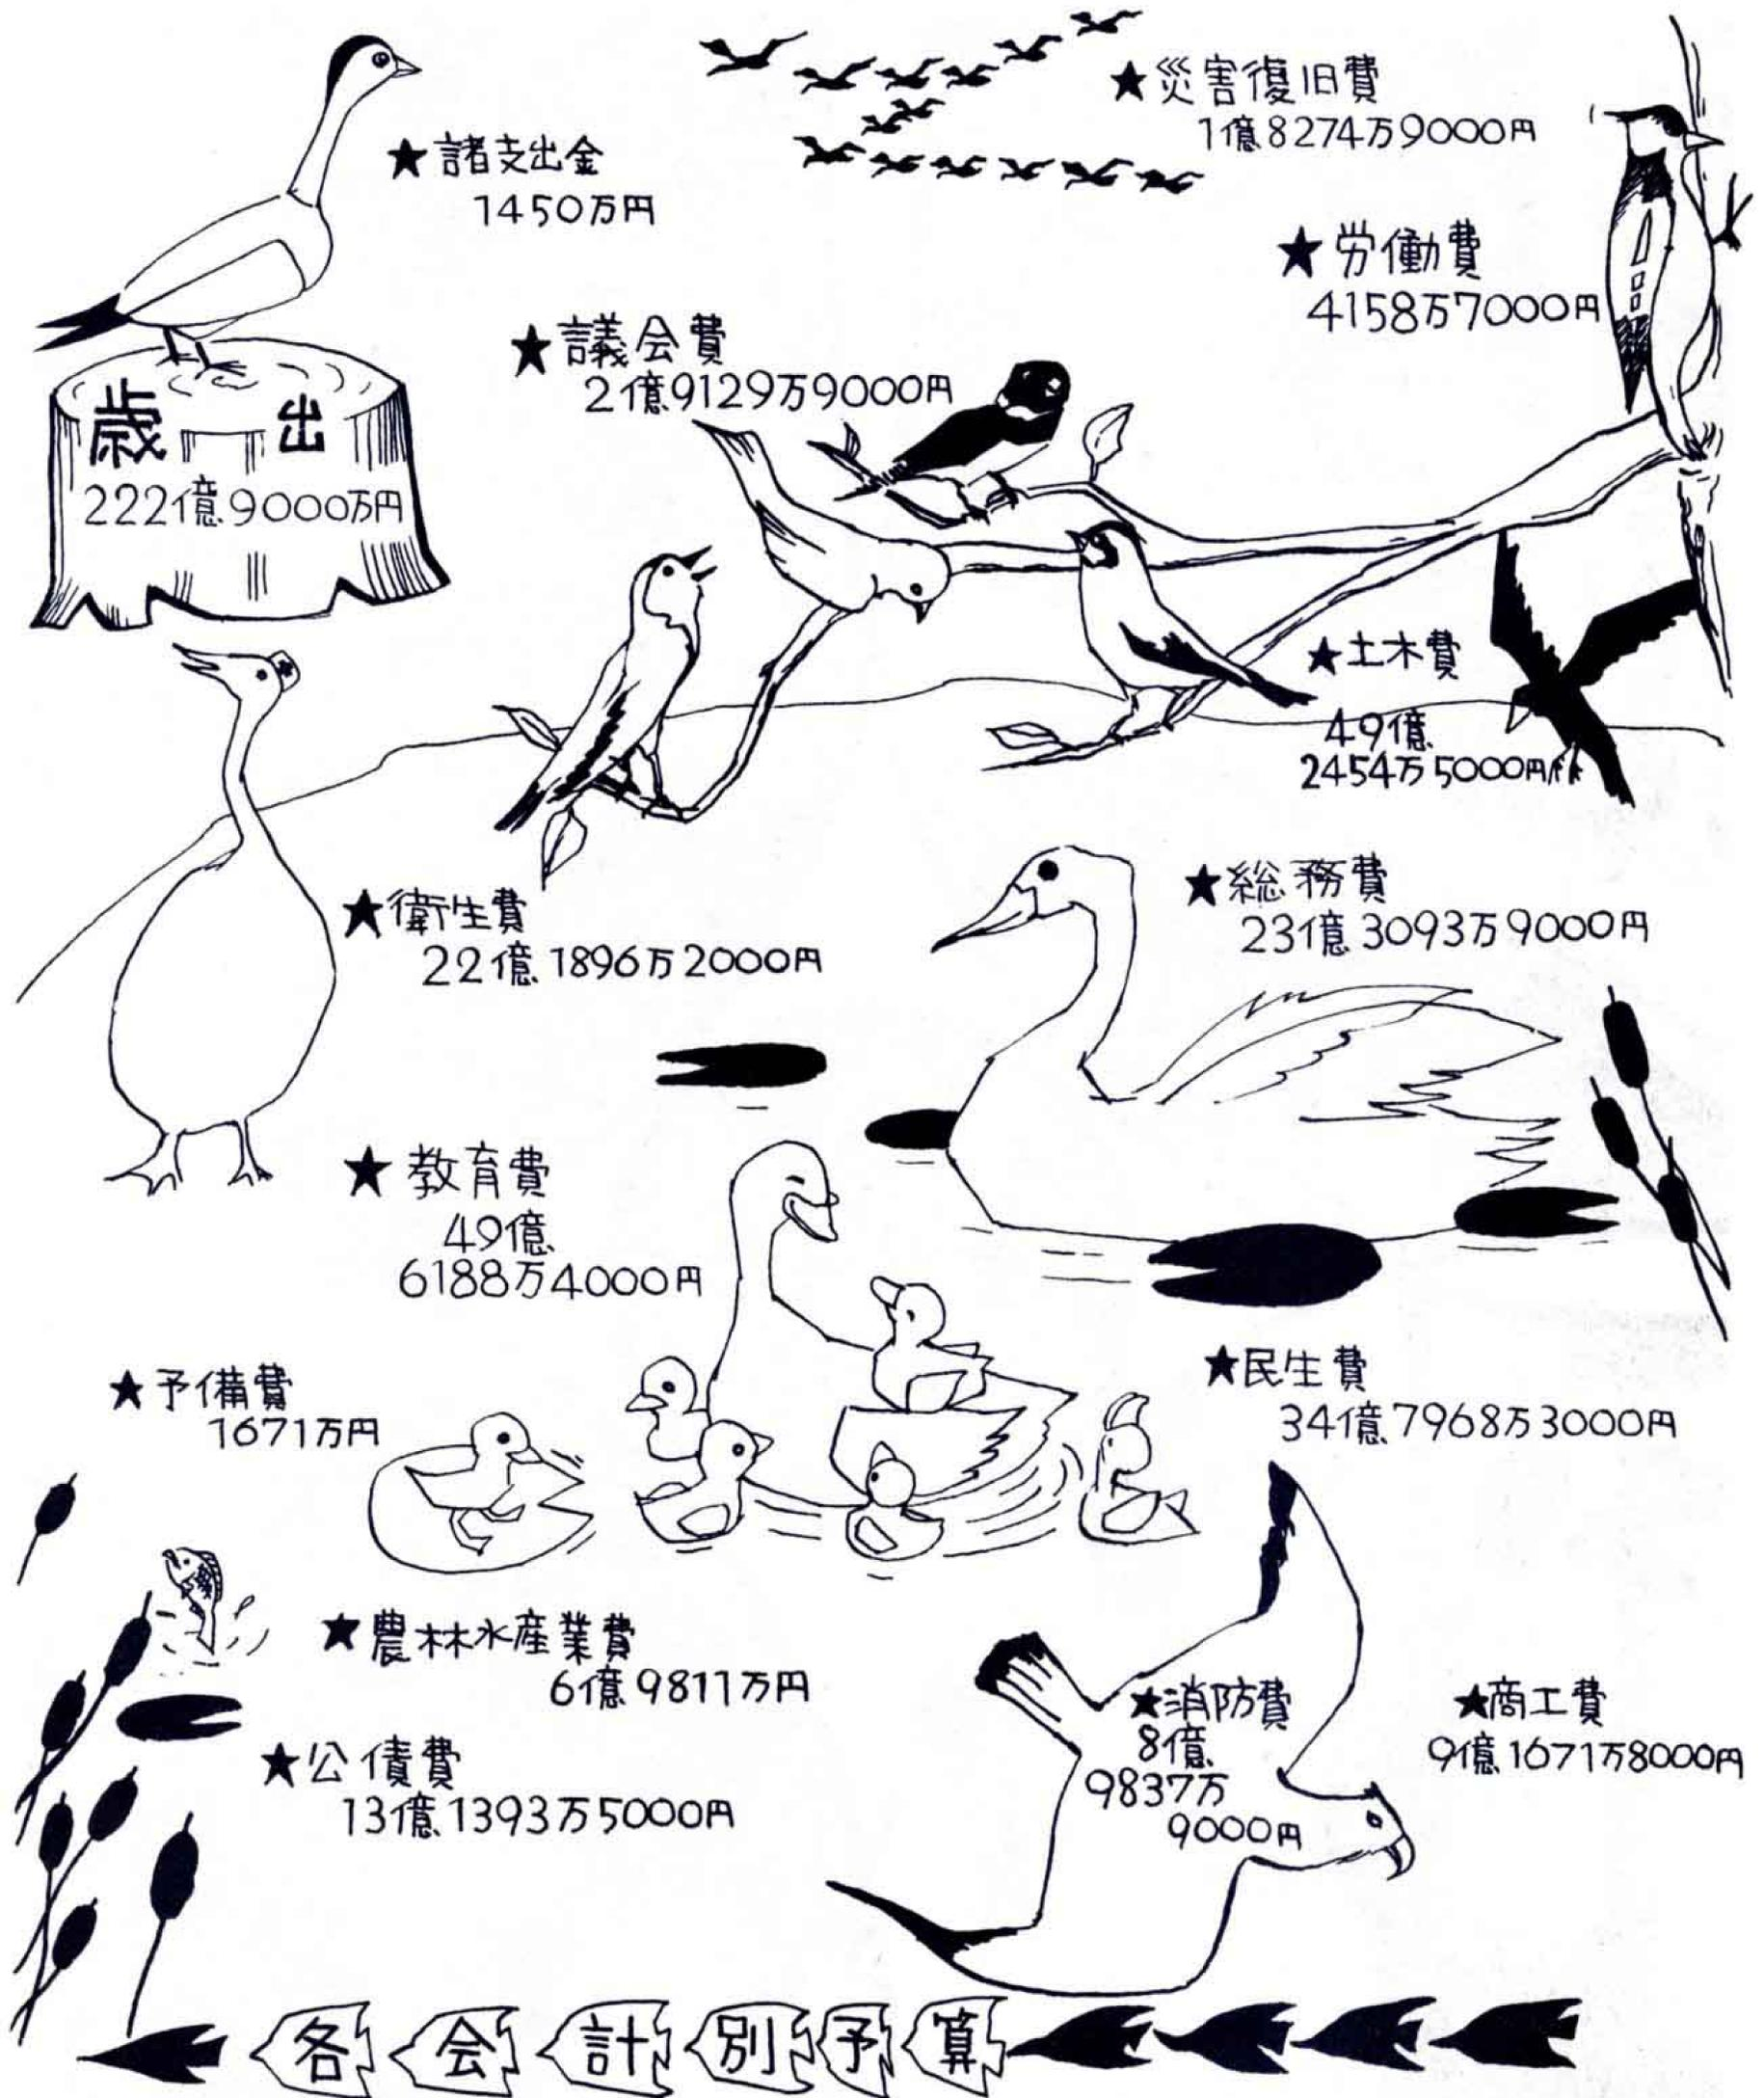 ★災害復旧費
1億8274万9000円
★諸支出金
1450万円
★労働費
4158万7000円
★議会費
2億9129万9000円
歳出
222億9000万円
★土木費
49億
2454万5000円
★衛生費
22億1896万2000円
★総務費
23億3093万9000円
★教育費
49億
6188万4000円
★予備費
1671万円
★民生費
34億7968万3000円
★農林水産業費
6億9811万円
★消防費
8億
9837万
9000円
★商工費
9億1671万8000円
★公債費
13億1393万5000円
各会計別予算